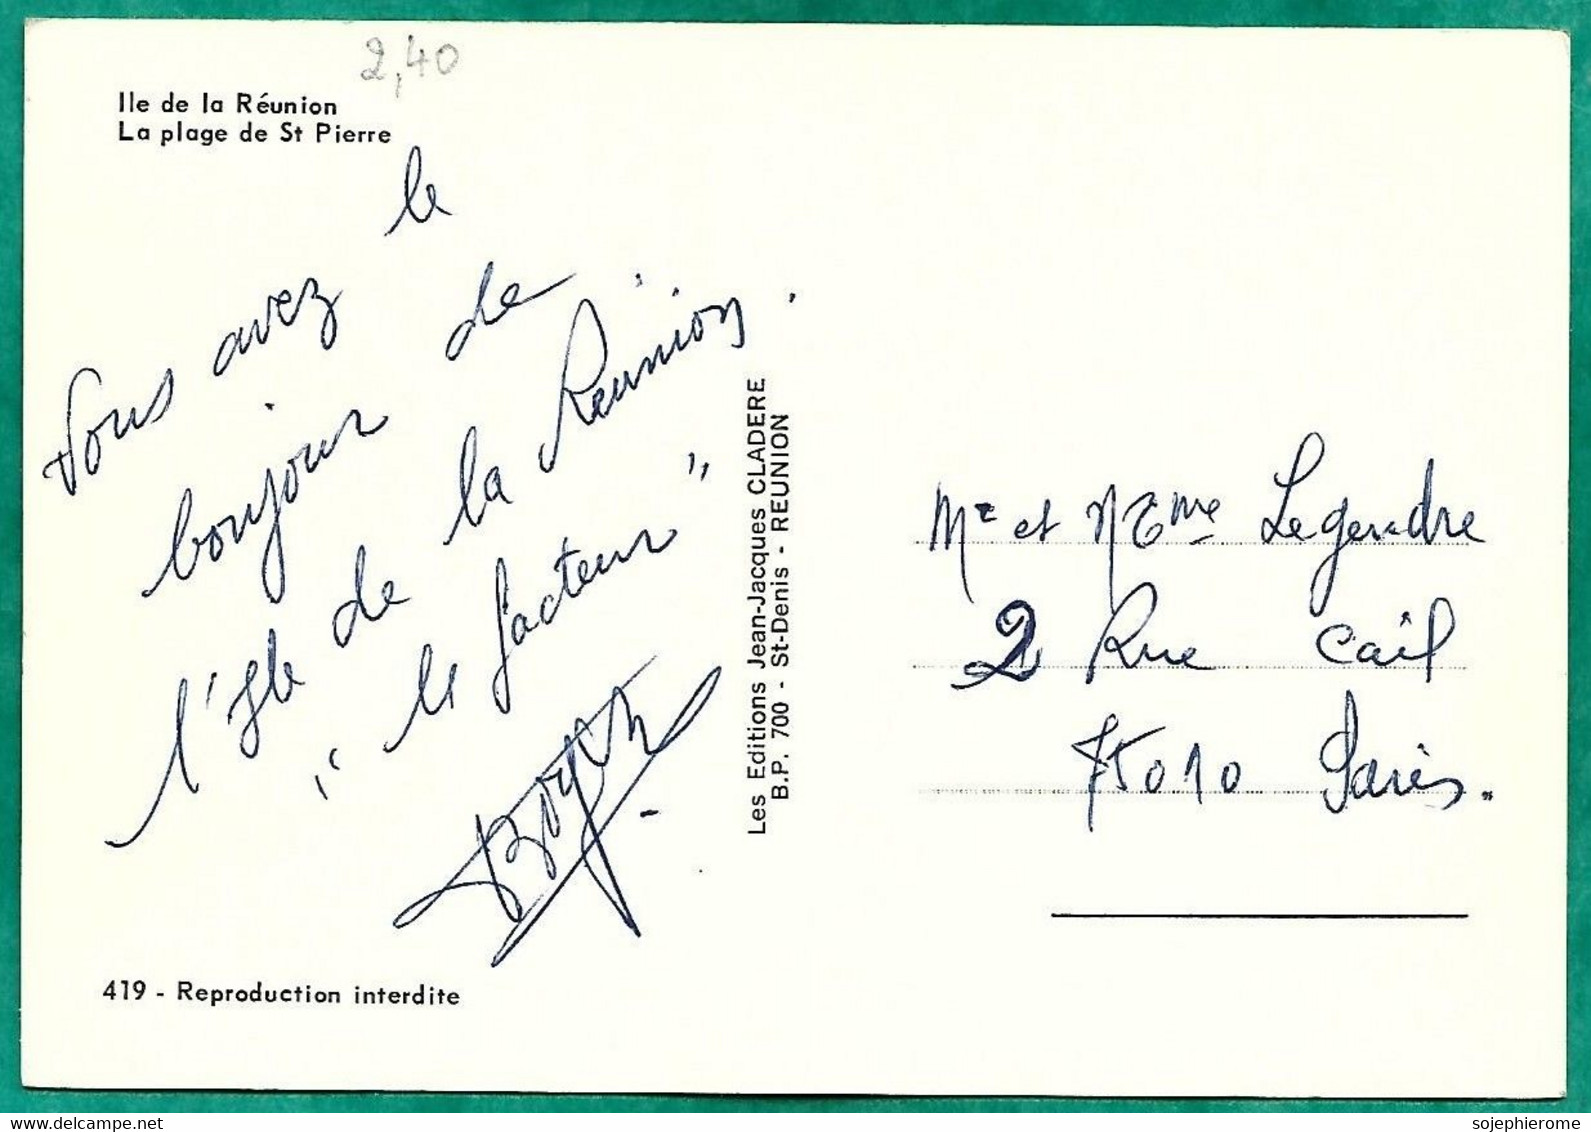 2,40
Ile de la Réunion
La plage de St Pierre
Vous avez le
bonjour de
l'Isle de la Réunion.
"le facteur"
Les Editions Jean-Jacques CLADERE
B.P. 700 - St-Denis - REUNION
Mr et Mme Legendre
2 Rue Cail
75010 Paris.
419 - Reproduction interdite
delcampe.net
sojephierome